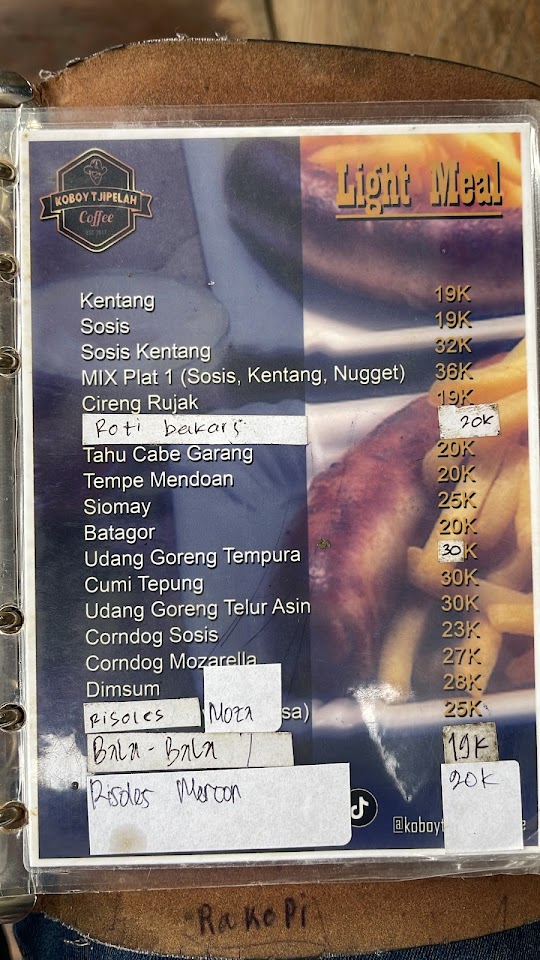 KOBOY TJIPELAH
Coffee
EST. 2017
Light Meal
Kentang 19K
Sosis 19K
Sosis Kentang 32K
MIX Plat 1 (Sosis, Kentang, Nugget) 36K
Cireng Rujak 19K
Roti bakar 20K
Tahu Cabe Garang 20K
Tempe Mendoan 20K
Siomay 25K
Batagor 20K
Udang Goreng Tempura 30K
Cumi Tepung 30K
Udang Goreng Telur Asin 30K
Corndog Sosis 23K
Corndog Mozarella 27K
Dimsum 28K
Risoles Moza sa) 25K
BALA - BALA 19K
Risoles Mercon 20K
@koboyt e
RaKoPi